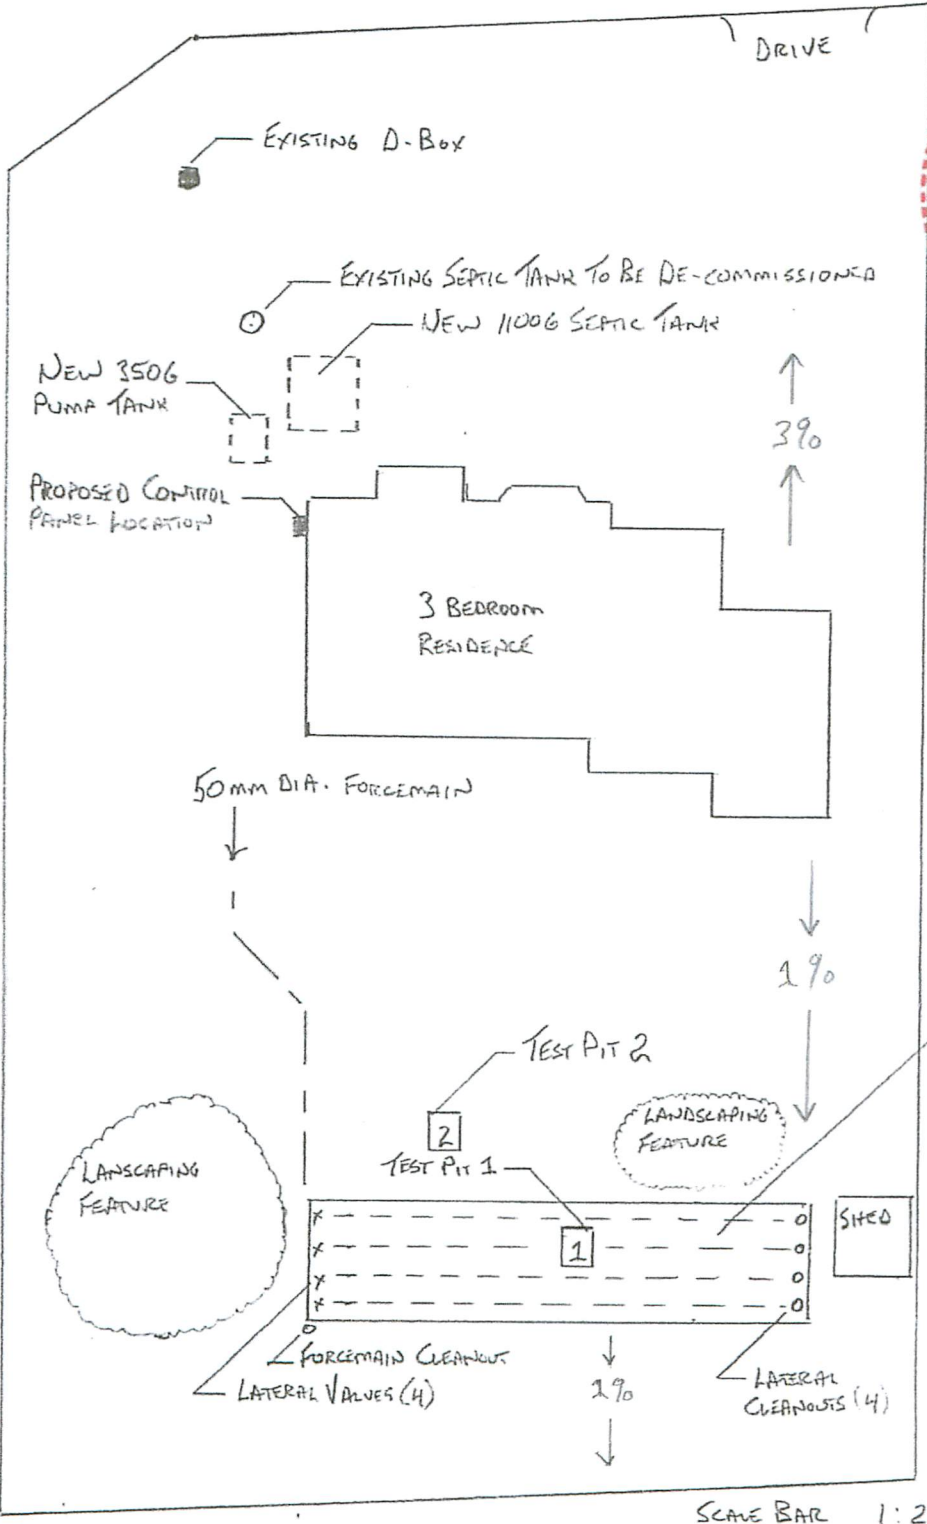 DRIVE
EXISTING D-BOX
EXISTING SEPTIC TANK TO BE DE-COMMISSIONED
NEW 1100G SEPTIC TANK
NEW 350G
PUMP TANK
3%
PROPOSED CONTROL
PANEL LOCATION
3 BEDROOM
RESIDENCE
50mm DIA. FORCEMAIN
1%
TEST PIT 2
2
TEST PIT 1
1
LANDSCAPING
FEATURE
LANSCAPING
FEATURE
SHED
FORCEMAIN CLEANOUT
LATERAL VALVES (4)
1%
LATERAL
CLEANOUTS (4)
SCALE BAR 1:2